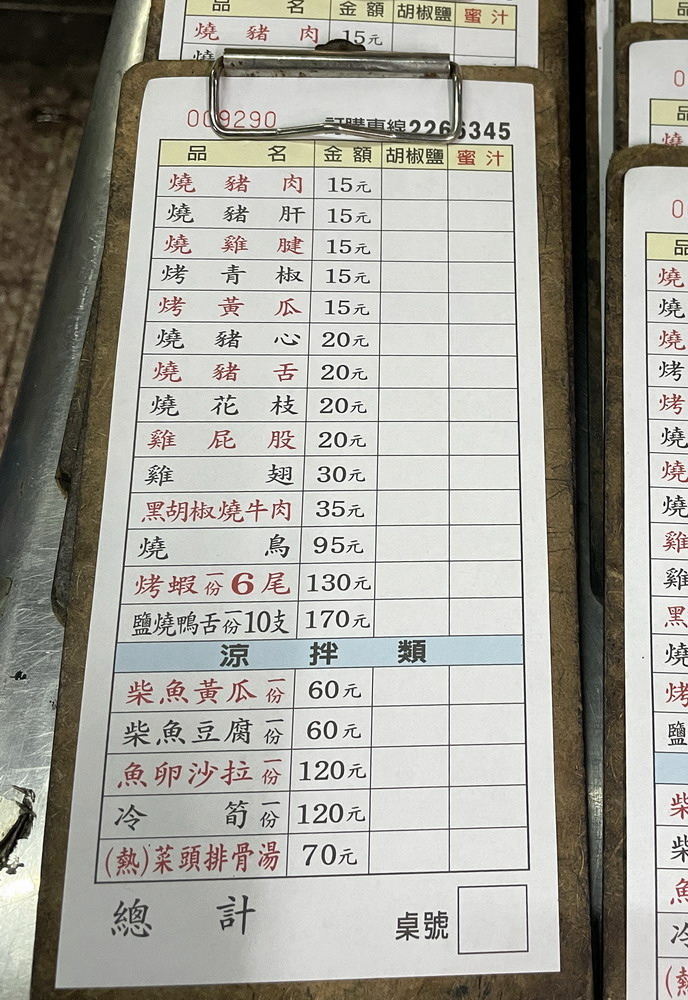 品名 金額 胡椒鹽 蜜汁
燒豬肉 15元
009290 訂購專線2266345
品名 金額 胡椒鹽 蜜汁
燒豬肉 15元
燒豬肝 15元
燒雞腱 15元
烤青椒 15元
烤黃瓜 15元
燒豬心 20元
燒豬舌 20元
燒花枝 20元
雞屁股 20元
雞翅 30元
黑胡椒燒牛肉 35元
燒鳥 95元
烤蝦一份6尾 130元
鹽燒鴨舌一份10支 170元
涼拌類
柴魚黃瓜一份 60元
柴魚豆腐一份 60元
魚卵沙拉一份 120元
冷筍一份 120元
(熱)菜頭排骨湯 70元
總計 桌號
品
燒
燒
燒
烤
烤
燒
燒
燒
雞
雞
黑
燒
烤
鹽
柴
柴
魚
冷
(熱